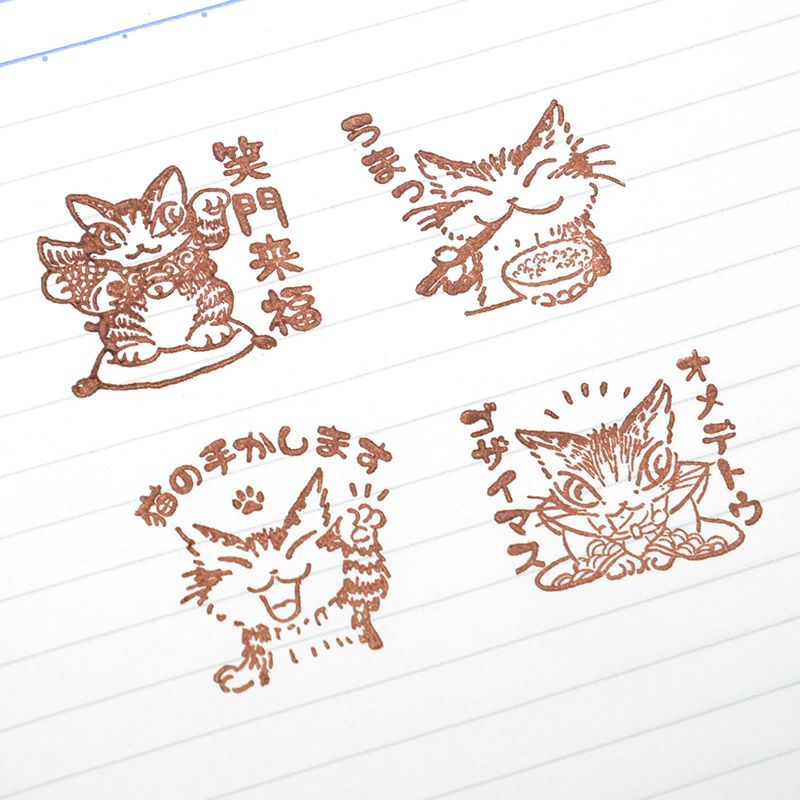 笑門来福
うまっ
猫の手かします
オメデトウ
ゴザイマス